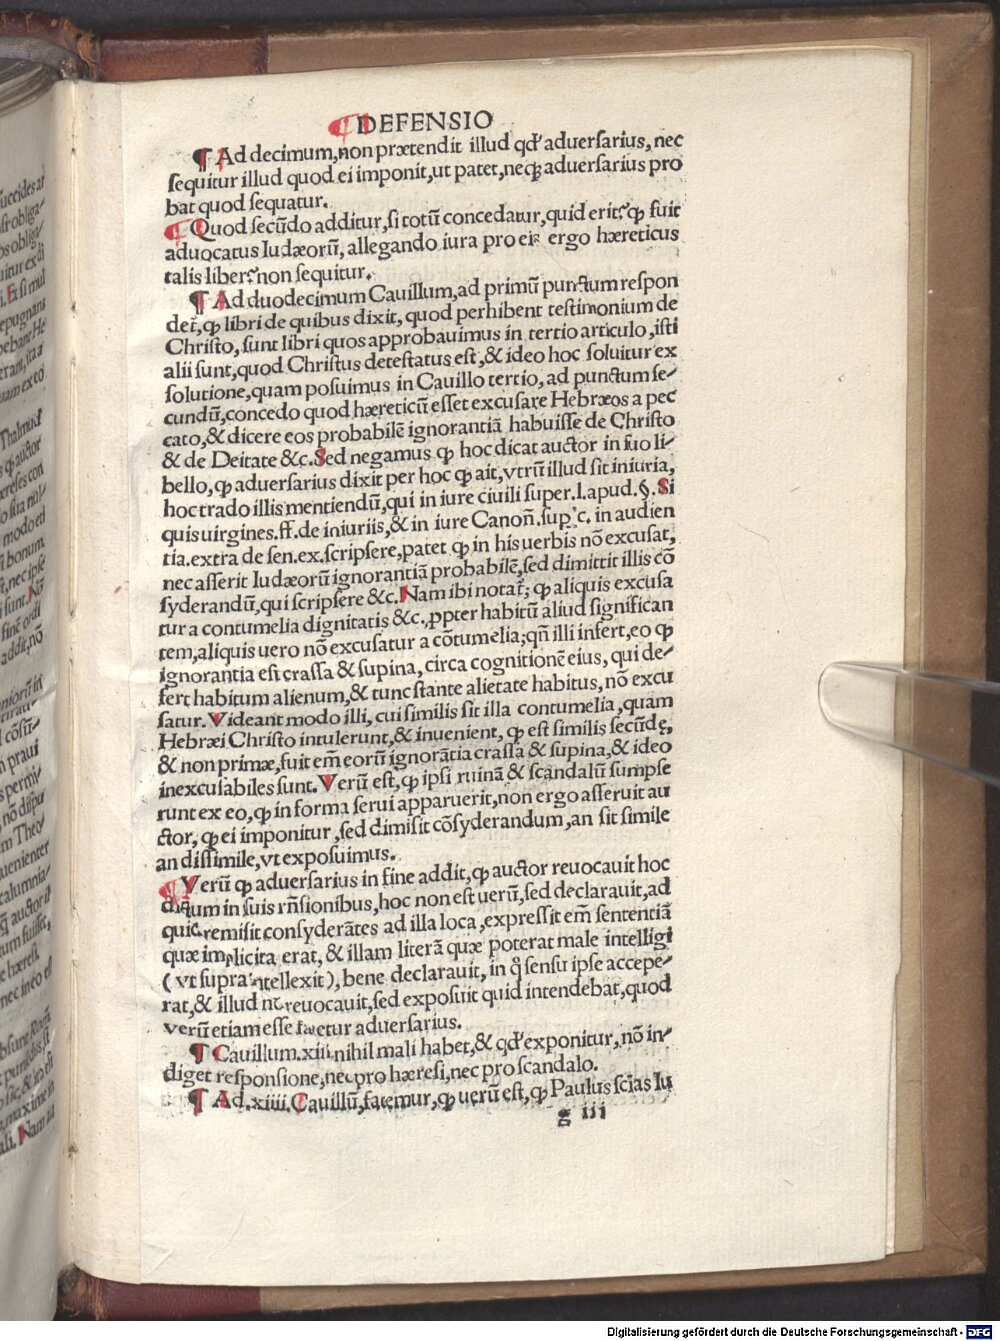 ¶ DEFENSIO
¶ Ad decimum, non prætendit illud qd' aduersarius, nec
sequitur illud quod ei imponit, ut patet, neqꝫ aduersarius pro
bat quod sequatur.
¶ Quod secūdo additur, si totū concedatur, quid erit? ꝙ fuit
aduocatus Iudæorū, allegando iura pro eis ergo hæreticus
talis liber? non sequitur.
¶ Ad duodecimum Cauillum, ad primū punctum respon
det̄, ꝙ libri de quibus dixit, quod perhibent testimonium de
Christo, sunt libri quos approbauimus in tertio articulo, isti
alii sunt, quod Christus detestatus est, & ideo hoc soluitur ex
solutione, quam posuimus in Cauillo tertio, ad punctum se⸗
cundū, concedo quod hæreticū esset excusare Hebræos a pec
cato, & dicere eos probabilē ignorantiā habuisse de Christo
& de Deitate &c. Sed negamus ꝙ hoc dicat auctor in suo li⸗
bello, ꝙ aduersarius dixit per hoc ꝙ ait, vtrū illud sit iniuria,
hoc trado illis mentiendū, qui in iure ciuili super .l. apud. §. Si
quis uirgines. ff. de iniuriis, & in iure Canoñ. sup' c. in audien
tia. extra de sen. ex. scripsere, patet ꝙ in his uerbis nō excusat,
nec asserit Iudæorū ignorantiā probabilē, sed dimittit illis cō
syderandū, qui scripsere &c. Nam ibi notat̄; ꝙ aliquis excusa
tur a contumelia dignitatis &c. ꝓpter habitū aliud significan
tem, aliquis uero nō excusatur a cōtumelia; qñ illi infert, eo ꝙ
ignorantia est crassa & supina, circa cognitionē eius, qui de⸗
fert habitum alienum, & tunc stante alietate habitus, nō excu
satur. Videant modo illi, cui similis sit illa contumelia, quam
Hebræi Christo intulerunt, & inuenient, ꝙ est similis secūdę,
& non primæ, fuit em̄ eorū ignorātia crassa & supina, & ideo
inexcusabiles sunt. Verū est, ꝙ ipsi ruinā & scandalū sumpse
runt ex eo, ꝙ in forma serui apparuerit, non ergo asseruit au
ctor, ꝙ ei imponitur, sed dimisit cōsyderandum, an sit simile
an dissimile, vt exposuimus.
¶ Verū ꝙ aduersarius in fine addit, ꝙ auctor reuocauit hoc
dictum in suis rñsionibus, hoc non est uerū, sed declarauit, ad
quid remisit consyderātes ad illa loca, expressit em̄ sententiā
quæ implicita erat, & illam literā quæ poterat male intelligi
( vt supra intellexit ), bene declarauit, in q̊ sensu ipse accepe⸗
rat, & illud nō reuocauit, sed exposuit quid intendebat, quod
verū etiam esse fatetur aduersarius.
¶ Cauillum. xiii. nihil mali habet, & qd' exponitur, nō in⸗
diget responsione, nec pro hæresi, nec pro scandalo.
¶ Ad. xiiii. Cauillū, fatemur, ꝙ uerū est, ꝙ Paulus scias Iu
g iii
Digitalisierung gefördert durch die Deutsche Forschungsgemeinschaft - DFG